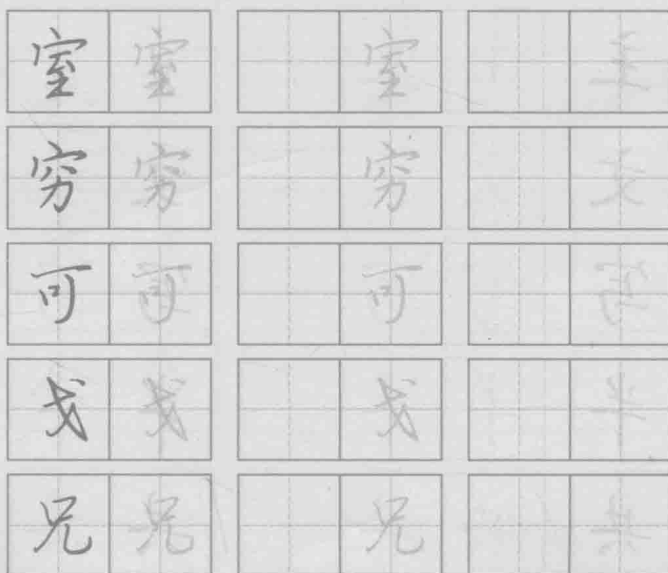 室室 室
穷穷 穷
可可 可
戈戈 戈
兄兄 兄